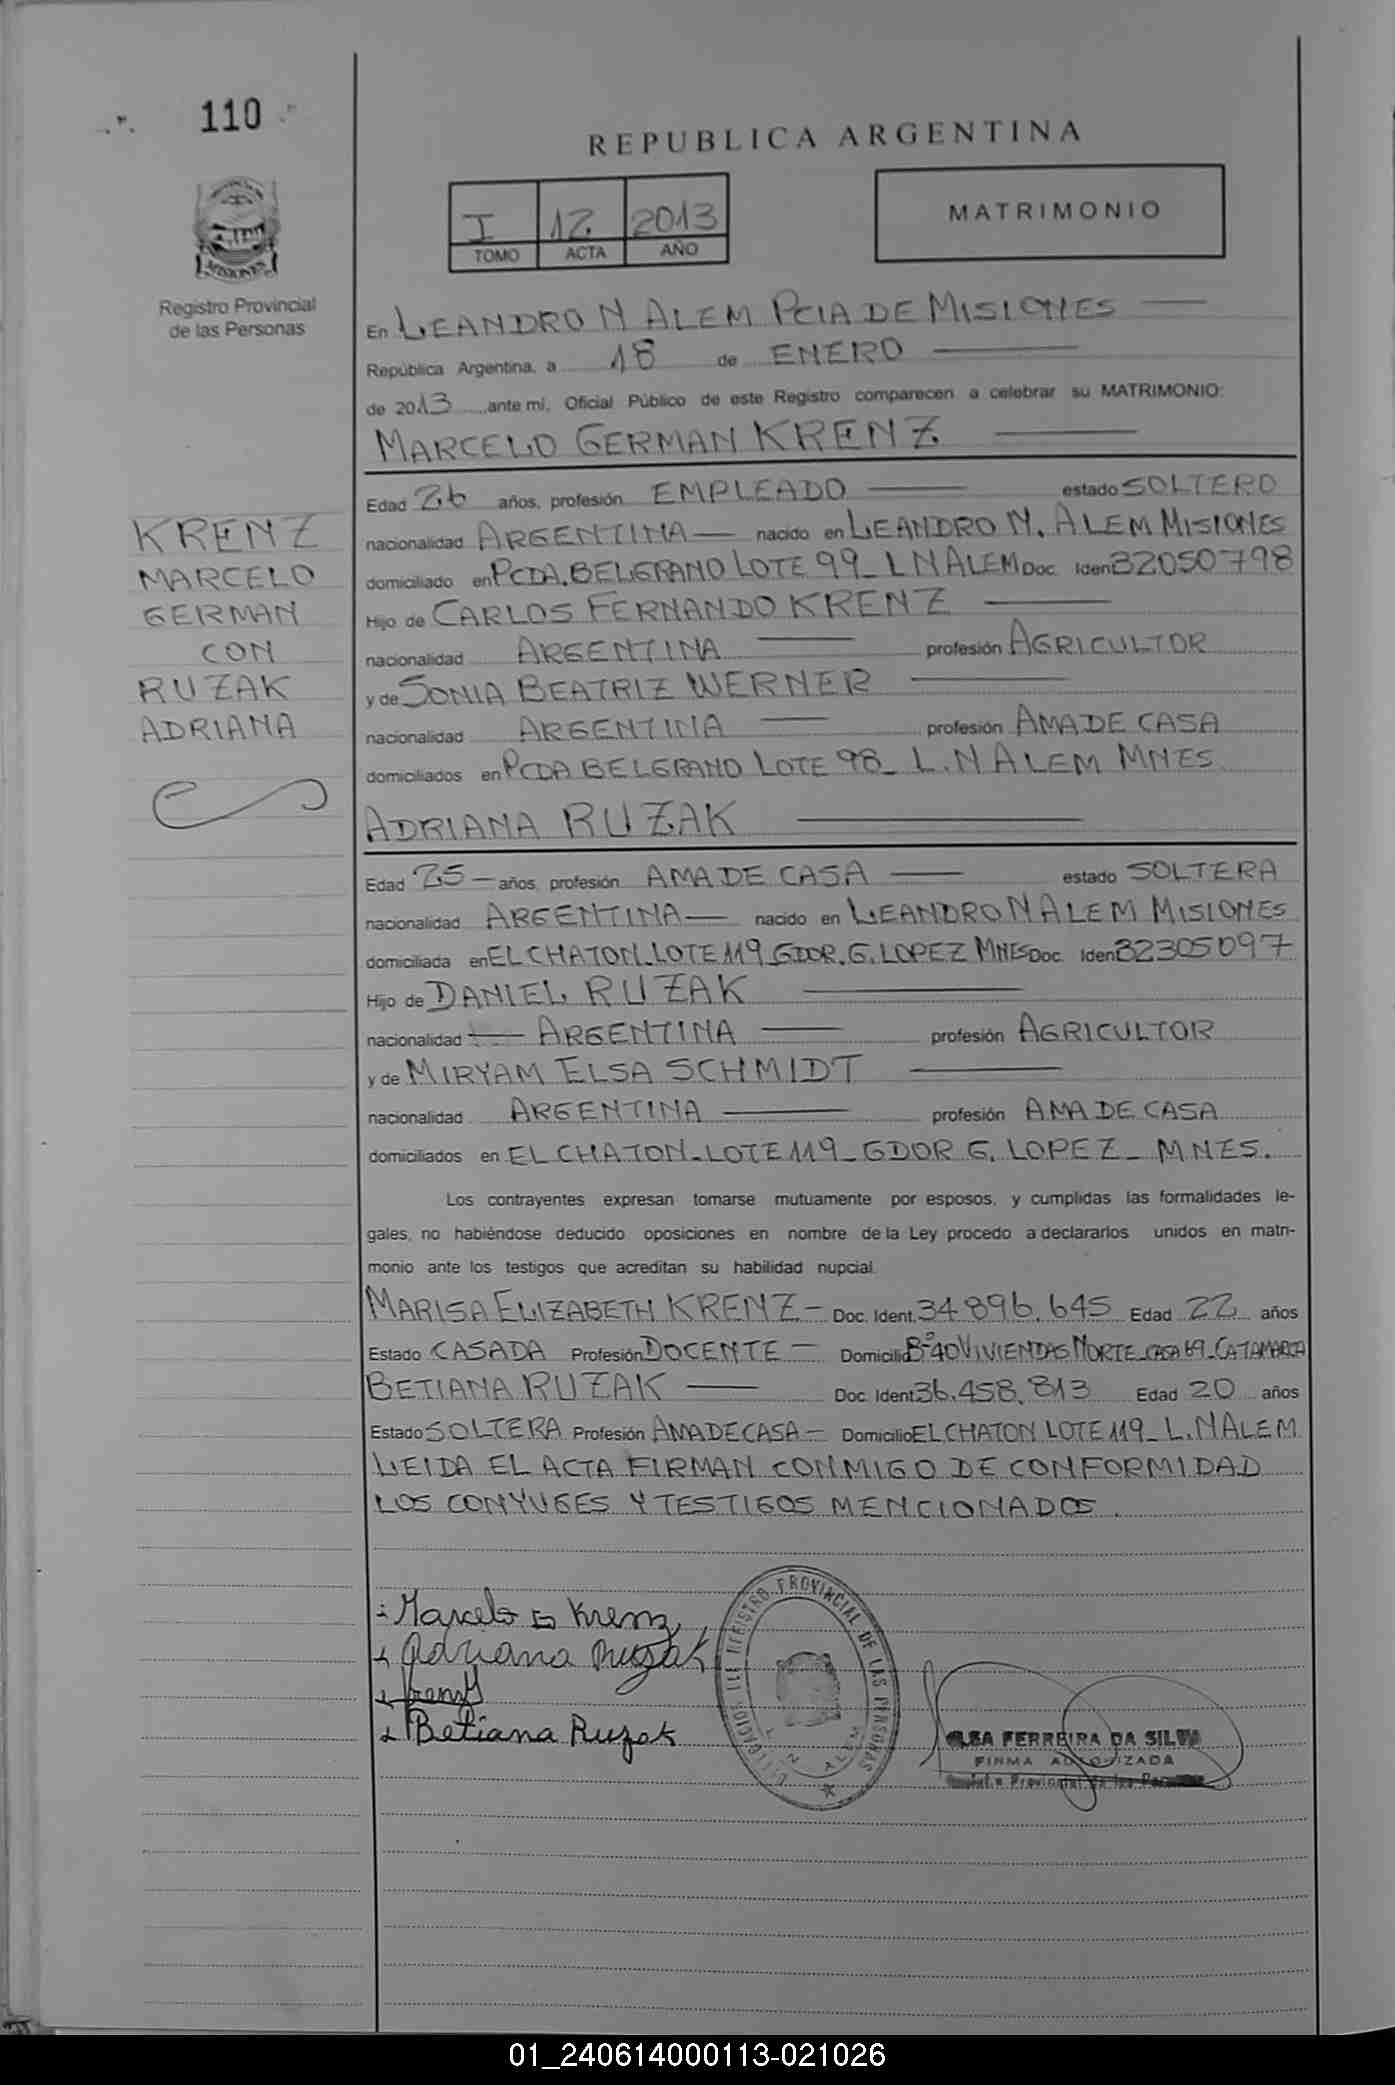 110
REPUBLICA ARGENTINA
MISIONES
Registro Provincial
de las Personas
I 12 2013
TOMO ACTA AÑO
MATRIMONIO
En LEANDRO N ALEM PCIA DE MISIONES
República Argentina, a 18 de ENERO
de 2013 ante mí, Oficial Público de este Registro comparecen a celebrar su MATRIMONIO:
MARCELO GERMAN KRENZ
Edad 26 años, profesión EMPLEADO estado SOLTERO
nacionalidad ARGENTINA nacido en LEANDRO N. ALEM MISIONES
domiciliado en PCDA. BELGRANO LOTE 99_ L N ALEM Doc. Iden 32050798
Hijo de CARLOS FERNANDO KRENZ
nacionalidad ARGENTINA profesión AGRICULTOR
y de SONIA BEATRIZ WERNER
nacionalidad ARGENTINA profesión AMA DE CASA
domiciliados en PCDA BELGRANO LOTE 98_ L. N ALEM MNES
KRENZ
MARCELO
GERMAN
CON
RUZAK
ADRIANA
ADRIANA RUZAK
Edad 25 años, profesión AMA DE CASA estado SOLTERA
nacionalidad ARGENTINA nacido en LEANDRO N ALEM MISIONES
domiciliada en EL CHATON_LOTE 119_GDOR. G. LOPEZ MNES Doc. Iden 32305097
Hijo de DANIEL RUZAK
nacionalidad ARGENTINA profesión AGRICULTOR
y de MIRYAM ELSA SCHMIDT
nacionalidad ARGENTINA profesión AMA DE CASA
domiciliados en EL CHATON_LOTE 119_GDOR G. LOPEZ_ MNES.
Los contrayentes expresan tomarse mutuamente por esposos, y cumplidas las formalidades le-
gales, no habiéndose deducido oposiciones en nombre de la Ley procedo a declararlos unidos en matri-
monio ante los testigos que acreditan su habilidad nupcial.
MARISA ELIZABETH KRENZ – Doc. Ident. 34.896.645 Edad 22 años
Estado CASADA Profesión DOCENTE – Domicilio Bº 40 VIVIENDAS NORTE_CASA 69_CATAMARCA
BETIANA RUZAK Doc. Ident. 36.458.813 Edad 20 años
Estado SOLTERA Profesión AMA DE CASA – Domicilio EL CHATON LOTE 119_ L. N ALEM
LEIDA EL ACTA FIRMAN CONMIGO DE CONFORMIDAD
LOS CONYUGES Y TESTIGOS MENCIONADOS.
Marcelo G Krenz
Adriana Ruzak
Betiana Ruzak
DELEGACION DEL REGISTRO PROVINCIAL DE LAS PERSONAS
L. N. ALEM
FERREIRA DA SILVA
FIRMA AUTORIZADA
Provincial de las
01_240614000113-021026